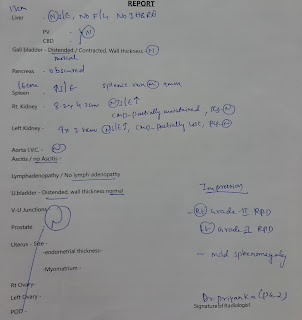 REPORT
13cm
Liver - (N) S/E, NO F/L, NO IHBRD
PV -
CBD - (N)
Gall bladder - Distended / Contracted, Wall thickness (N)
Pancreas - obscured
Spleen ↑S/E splenic vein
Rt. Kidney - (N)S/E↑
CMD - partially maintained, PCS (N)
Left Kidney - (N)S/E↑, CMD - partially lost, PCS (N)
Aorta I.V.C. - (N)
Ascitis / no Ascitis -
Lymphadenopathy / No lymph adenopathy
U.bladder - Distended, wall thickness normal
Impression
V-U Junctions
- Rt Grade-II RPD
Prostate
Lt Grade II RPD
Uterus - Size
- mild splenomegaly
-endometrial thickness-
-Myomatrium -
Rt Ovary-
Left Ovary -
Dr. Priyanka (PG-2)
POD -
Signature of Radiologist